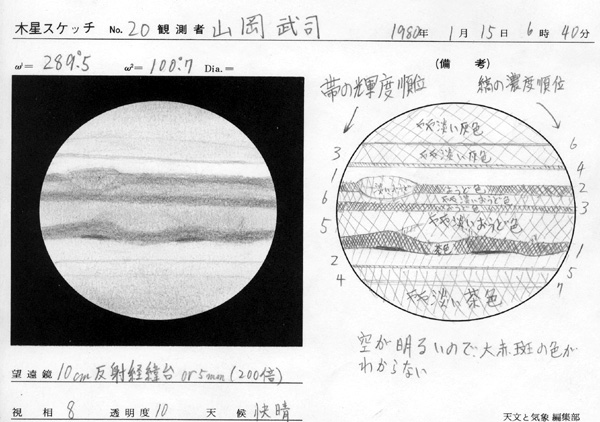 木星スケッチ No. 20 観測者 山岡武司 1980年 1月 15日 6時 40分
ω¹= 289.°5 ω²= 100.°7 Dia.=
(備 考)
帯の輝度順位 縞の濃度順位
やや淡い灰色
6
3 やや淡い灰色
4
1
淡いおうど おうど色 2
6 やや淡いおうど色
おうど色 3
5 やや淡いおうど色
茶色 1
2
5
4 やや淡い茶色 7
空が明るいので、大赤斑の色が
わからない
望遠鏡 10cm反射経緯台 or 5mm (200倍)
視相 8 透明度 10 天候 快晴
天文と気象 編集部